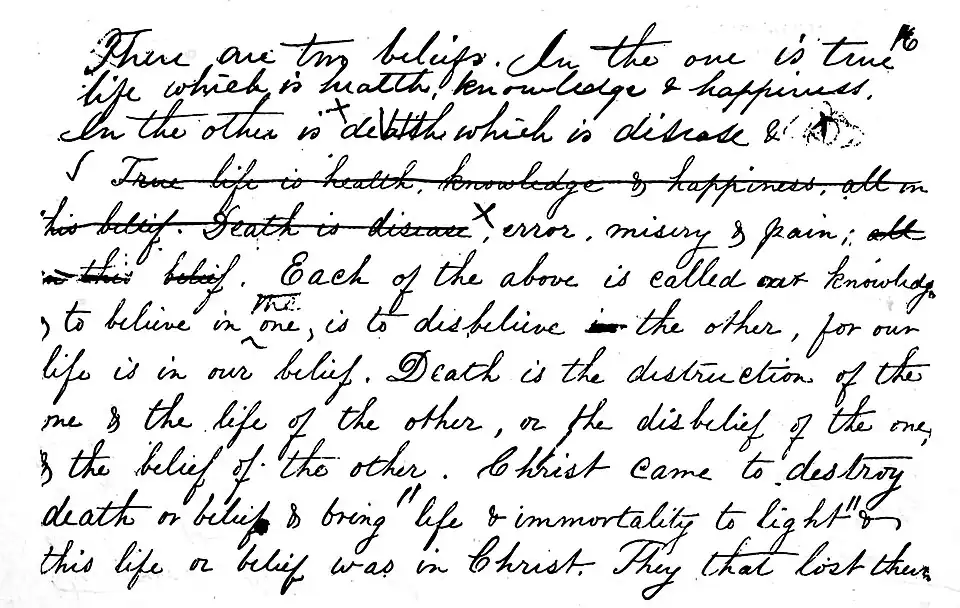 16
There are two beliefs. In the one is true
life which is health, knowledge & happiness.
In the other is death which is disease &
True life is health, knowledge & happiness, all in
this belief. Death is disease, error, misery & pain; all
in this belief. Each of the above is called our knowledge
& to believe in the one, is to disbelieve in the other, for our
life is in our belief. Death is the destruction of the
one & the life of the other, or the disbelief of the one,
& the belief of the other. Christ came to destroy
death or belief & bring "life & immortality to light" &
this life or belief was in Christ. They that lost their